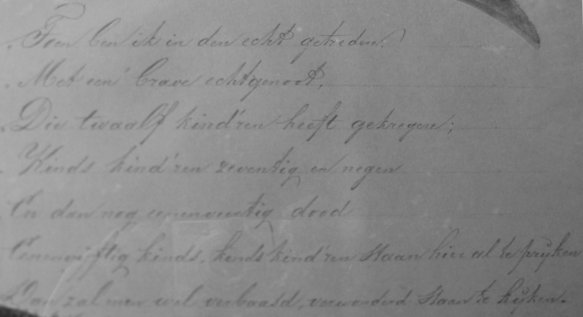 Toen ben ik in den echt getreden,
Met een' brave echtgenoot,
Die twaalf kind'ren heeft gekregen;
Kinds kind'ren zeventig en negen
En dan nog eenenveertig dood
Eenenvijftig kinds, kinds kind'ren staan hier al te prijken
Dan zal men wel verbaasd, verwonderd staan te kijken.